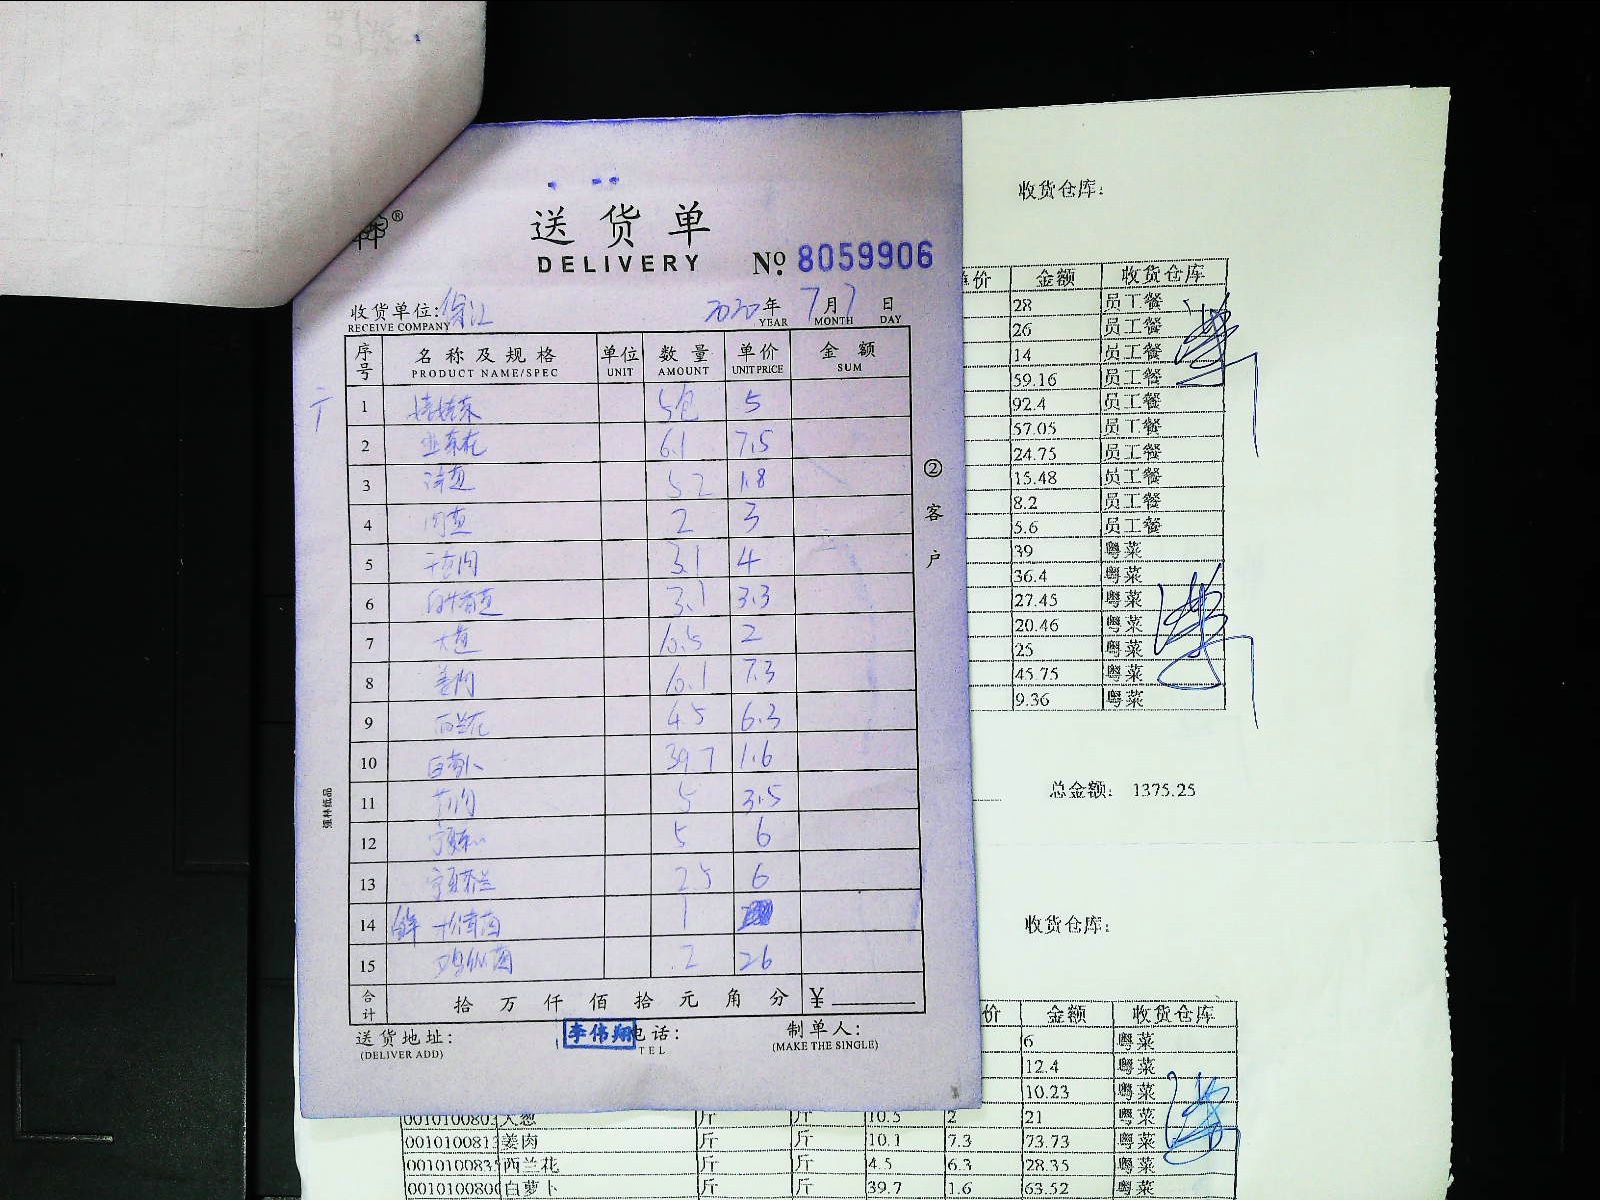 送货单
DELIVERY
№ 8059906
收货单位:
RECEIVE COMPANY
2020年 7月 7日
YEAR MONTH DAY
序号 名称及规格 单位 数量 单价 金额
PRODUCT NAME/SPEC UNIT AMOUNT UNIT PRICE SUM
1 娃娃菜 5包 5
2 6.1 7.5
3 洋葱 5.2 1.8
4 肉葱 2 3
5 干葱肉 3.1 4
6 3.1 3.3
7 大葱 10.5 2
8 姜肉 10.1 7.3
9 西兰花 4.5 6.3
10 白萝卜 39.7 1.6
11 5 3.5
12 宁夏菜心 5 6
13 宁夏芥兰 2.5 6
14 鲜 1
15 鸡枞菌 .2 26
合计 拾万仟佰拾元角分 ¥
送货地址: 李伟翔 电话: 制单人:
(DELIVER ADD) TEL (MAKE THE SINGLE)
②客户
强林纸品
收货仓库:
价 金额 收货仓库
28 员工餐
26 员工餐
14 员工餐
59.16 员工餐
92.4 员工餐
57.05 员工餐
24.75 员工餐
15.48 员工餐
8.2 员工餐
5.6 员工餐
39 粤菜
36.4 粤菜
27.45 粤菜
20.46 粤菜
25 粤菜
45.75 粤菜
9.36 粤菜
总金额: 1375.25
收货仓库:
价 金额 收货仓库
6 粤菜
12.4 粤菜
10.23 粤菜
大葱 斤 斤 10.5 2 21 粤菜
001010081 姜肉 斤 斤 10.1 7.3 73.73 粤菜
001010083 西兰花 斤 斤 4.5 6.3 28.35 粤菜
001010080 白萝卜 斤 斤 39.7 1.6 63.52 粤菜